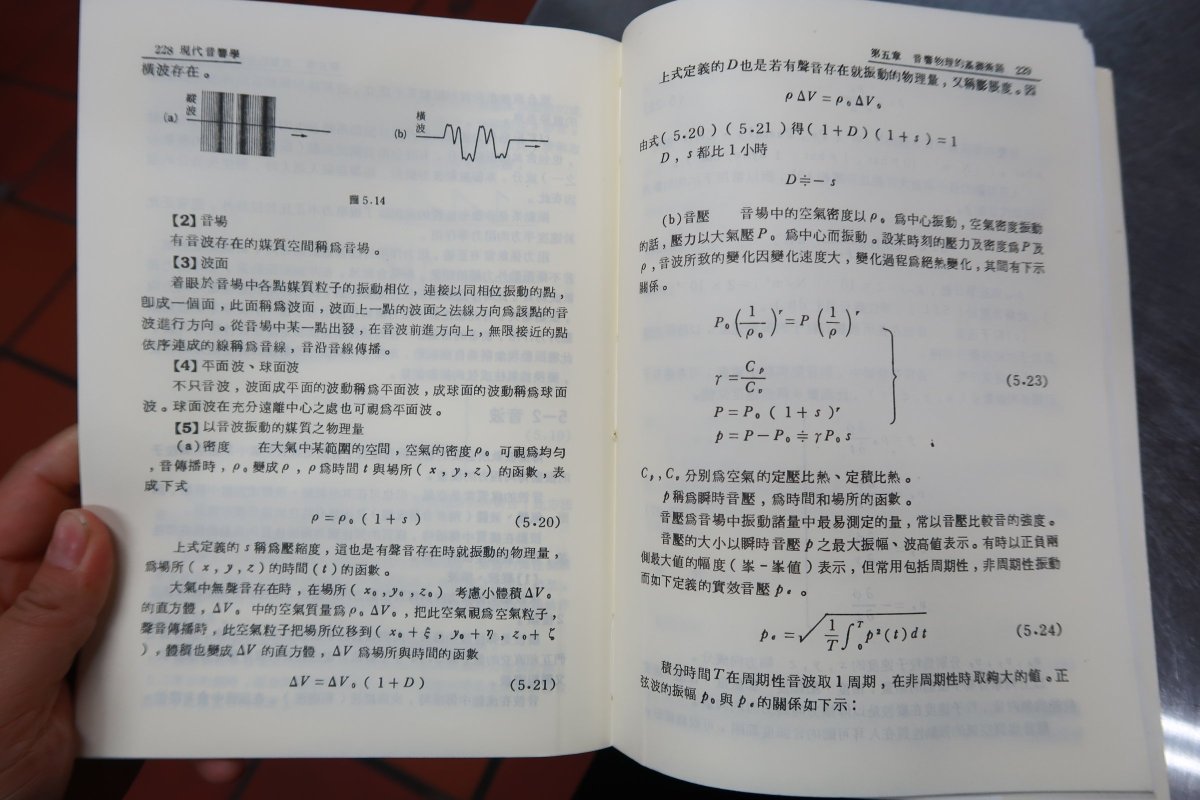 228 現代音響學
橫波存在。
縱波
(a)
橫波
(b)
圖5.14
【2】音場
有音波存在的媒質空間稱爲音場。
【3】波面
着眼於音場中各點媒質粒子的振動相位，連接以同相位振動的點，
卽成一個面，此面稱爲波面，波面上一點的波面之法線方向爲該點的音
波進行方向。從音場中某一點出發，在音波前進方向上，無限接近的點
依序連成的線稱爲音線，音沿音線傳播。
【4】平面波、球面波
不只音波，波面成平面的波動稱爲平面波，成球面的波動稱爲球面
波。球面波在充分遠離中心之處也可視爲平面波。
【5】以音波振動的媒質之物理量
(a)密度 在大氣中某範圍的空間，空氣的密度ρ₀可視爲均勻
，音傳播時，ρ₀變成ρ，ρ爲時間t與場所(x,y,z)的函數，表
成下式
ρ=ρ₀(1+s) (5.20)
上式定義的s稱爲壓縮度，這也是有聲音存在時就振動的物理量，
爲場所(x,y,z)的時間(t)的函數。
大氣中無聲音存在時，在場所(x₀,y₀,z₀)考慮小體積ΔV₀
的直方體，ΔV₀中的空氣質量爲ρ₀ΔV₀，把此空氣視爲空氣粒子，
聲音傳播時，此空氣粒子把場所位移到(x₀+ξ, y₀+η, z₀+ζ
)，體積也變成ΔV的直方體，ΔV爲場所與時間的函數
ΔV=ΔV₀(1+D) (5.21)
第五章 音響物理的基礎術語 229
上式定義的D也是若有聲音存在就振動的物理量，又稱膨脹度。因
ρΔV=ρ₀ΔV₀
由式(5.20)(5.21)得(1+D)(1+s)=1
D，s都比1小時
D≒-s
(b)音壓 音場中的空氣密度以ρ₀爲中心振動，空氣密度振動
的話，壓力以大氣壓P₀爲中心而振動。設某時刻的壓力及密度爲P及
ρ，音波所致的變化因變化速度大，變化過程爲絕熱變化，其間有下示
關係。
P₀(1/ρ₀)^γ=P(1/ρ)^γ
γ=Cp/Cv (5.23)
P=P₀(1+s)^γ
p=P-P₀≒γP₀s
Cp，Cv分別爲空氣的定壓比熱、定積比熱。
p稱爲瞬時音壓，爲時間和場所的函數。
音壓爲音場中振動諸量中最易測定的量，常以音壓比較音的強度。
音壓的大小以瞬時音壓p之最大振幅、波高值表示。有時以正負兩
側最大值的幅度(峯-峯值)表示，但常用包括周期性，非周期性振動
而如下定義的實效音壓pₑ。
pₑ=√(1/T ∫₀ᵀ p²(t)dt) (5.24)
積分時間T在周期性音波取1周期，在非周期性時取夠大的值。正
弦波的振幅p₀與pₑ的關係如下示：